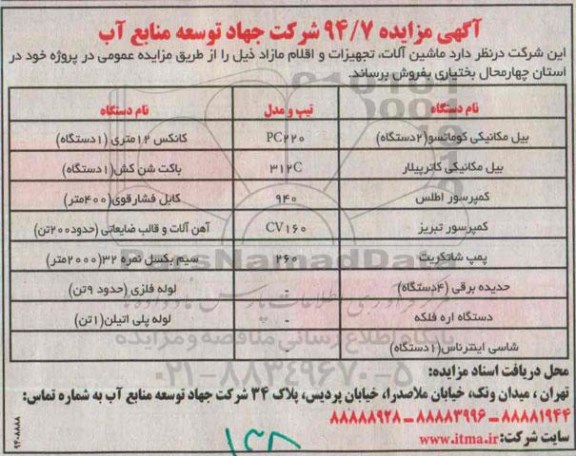 آگهی مزایده ۹۴/۷ شرکت جهاد توسعه منابع آب
این شرکت درنظر دارد ماشین آلات، تجهیزات و اقلام مازاد ذیل را از طریق مزایده عمومی در پروژه خود در
استان چهارمحال بختیاری بفروش برساند.
نام دستگاه تیپ و مدل نام دستگاه
بیل مکانیکی کوماتسو(۲دستگاه) PC۲۲۰ کانکس ۱۲متری (۱دستگاه)
بیل مکانیکی کاترپیلار ۳۱۲C باکت شن کش(۱دستگاه)
کمپرسور اطلس ۹۴۰ کابل فشارقوی(۴۰۰متر)
کمپرسور تبریز CV۱۶۰ آهن آلات و قالب ضایعاتی (حدود۲۰۰تن)
پمپ شاتکریت ۲۶۰ سیم بکسل نمره ۳۲(۲۰۰۰متر)
حدیده برقی (۴دستگاه) - لوله فلزی (حدود ۹تن)
دستگاه اره فلکه - لوله پلی اتیلن(۱تن)
شاسی اینترناس(۱دستگاه)
محل دریافت اسناد مزایده:
تهران ، میدان ونک، خیابان ملاصدرا، خیابان پردیس، پلاک ۳۴ شرکت جهاد توسعه منابع آب به شماره تماس:
۸۸۸۸۱۹۴۴ – ۸۸۸۸۳۹۹۶ – ۸۸۸۸۸۹۲۸
سایت شرکت: www.itma.ir
ParsNamadData
پایگاه اطلاع رسانی مناقصه و مزایده
۰۲۱-۸۸۳۴۹۶۷۰-۵